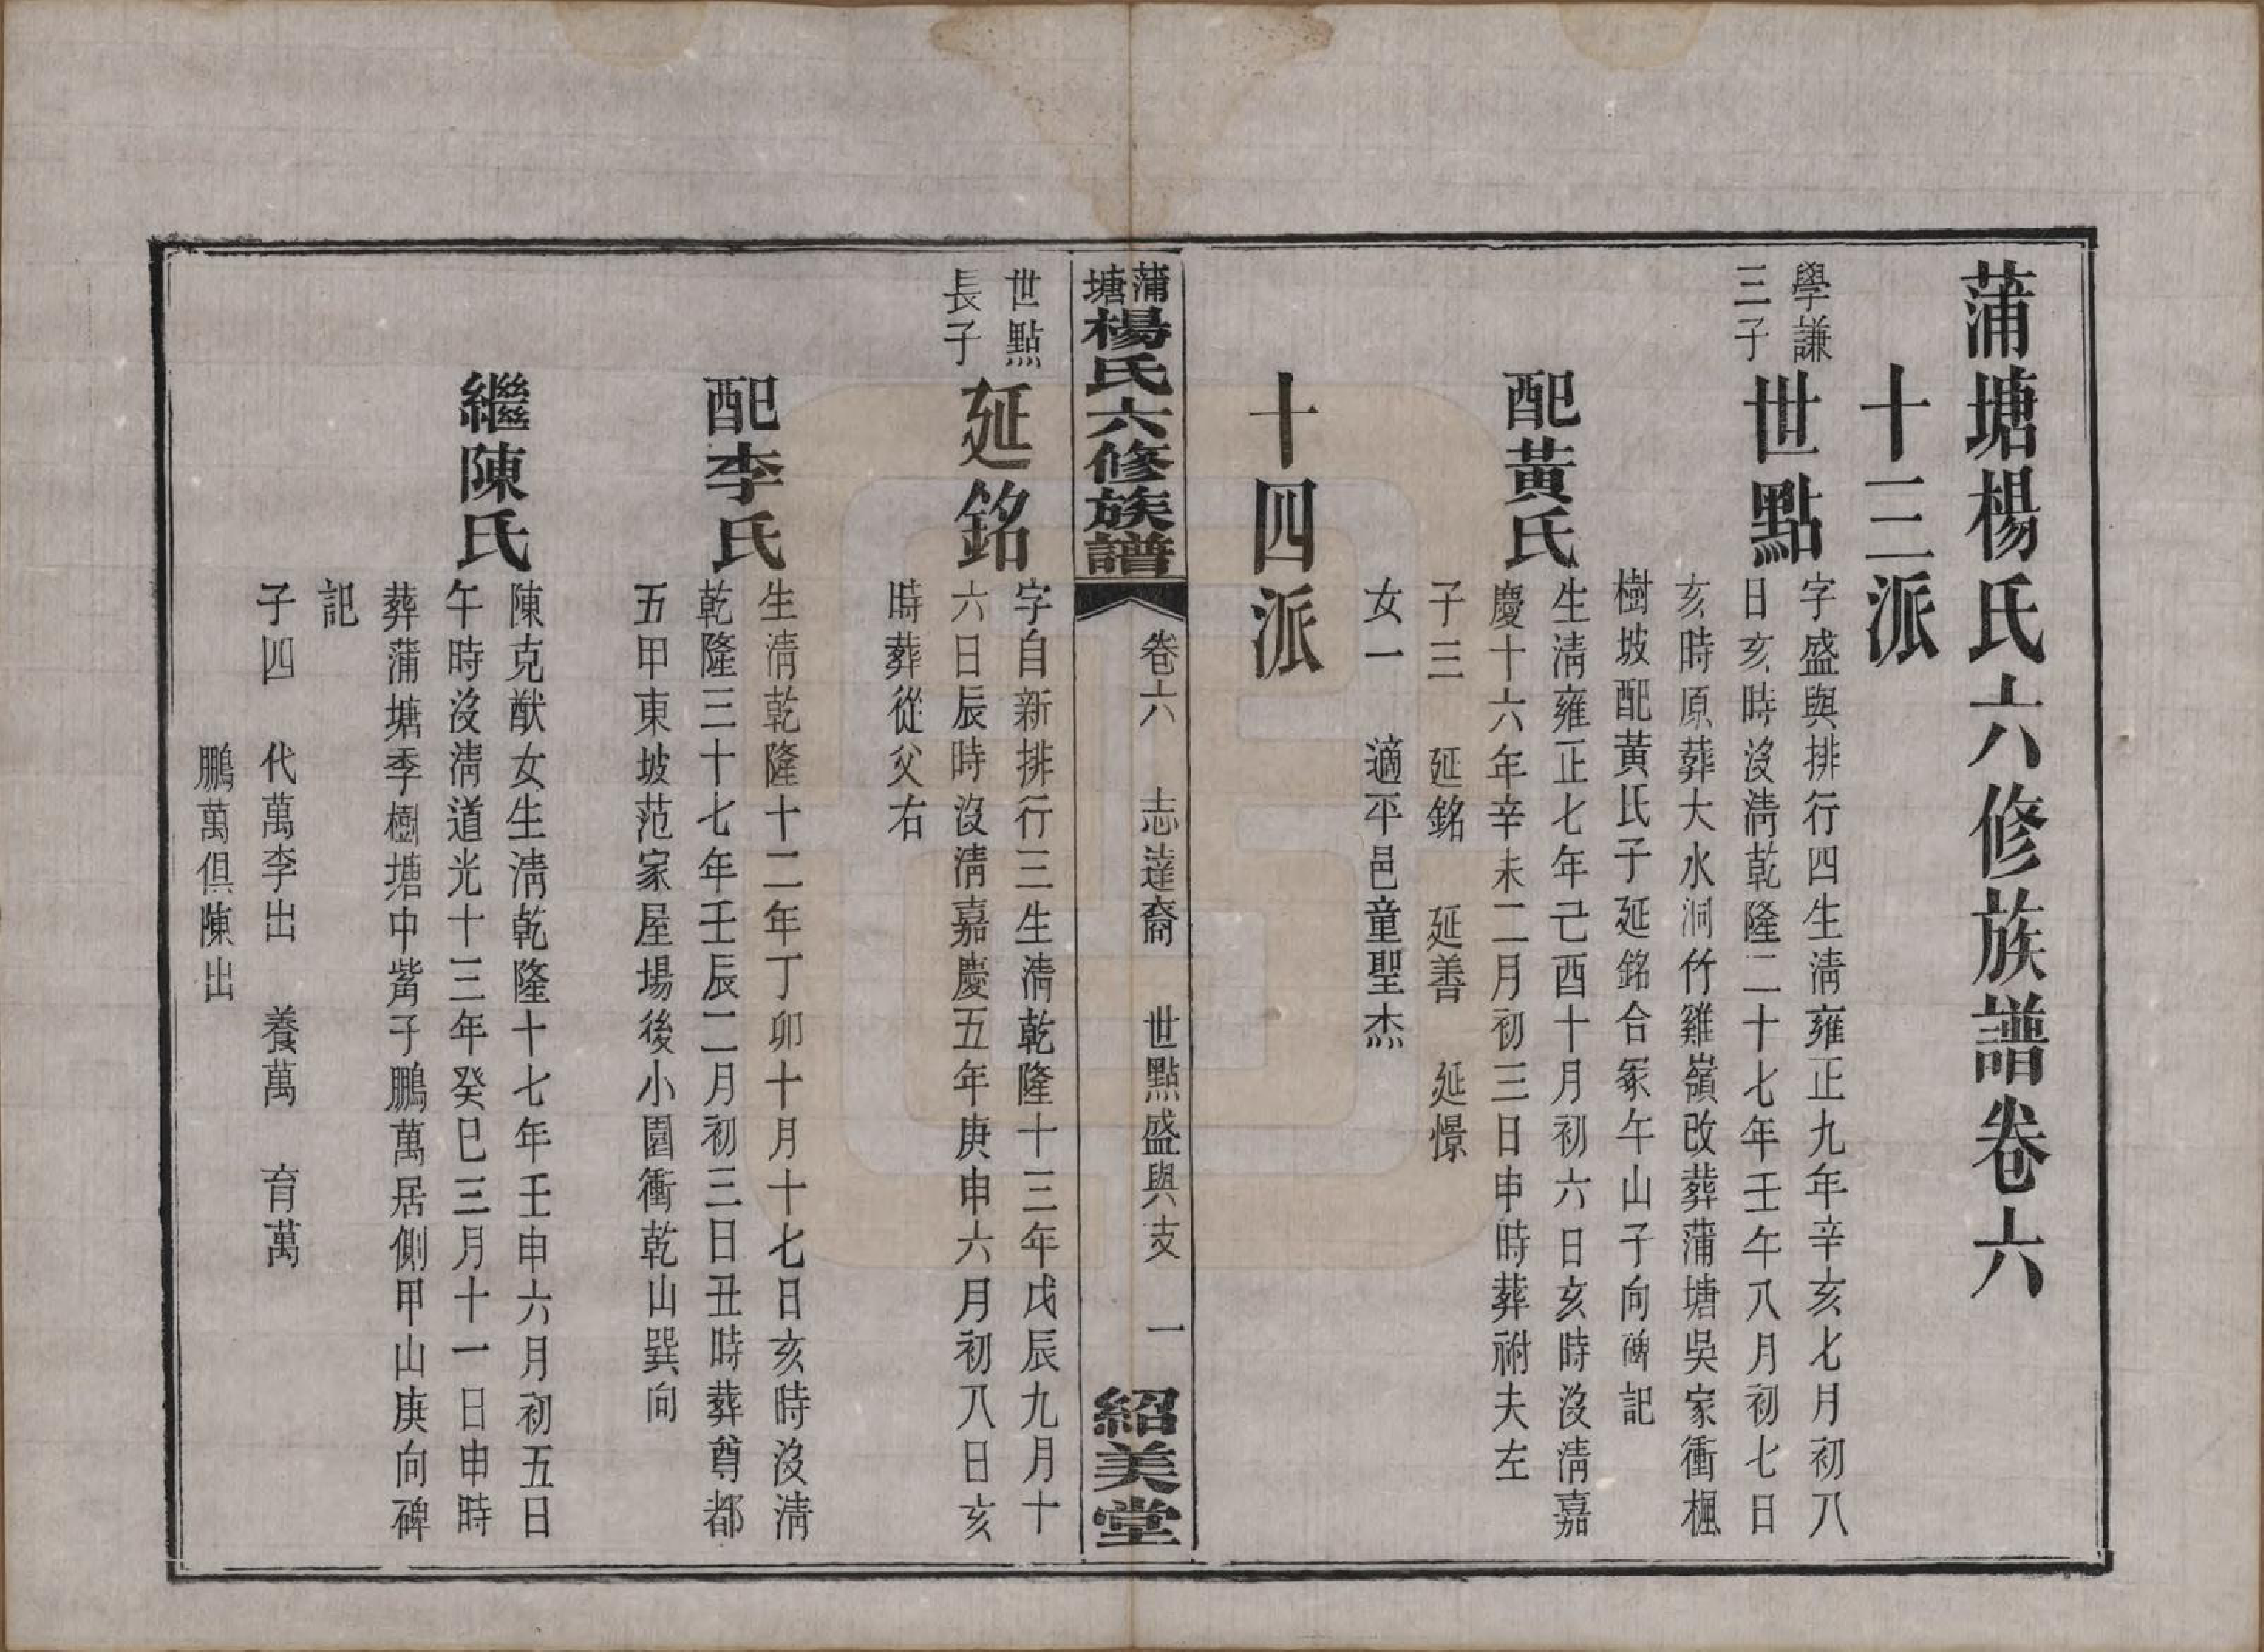 蒲塘楊氏六修族譜卷六
十三派
學謙
三子
世點
字盛與排行四生淸雍正九年辛亥七月初八
日亥時沒淸乾隆二十七年壬午八月初七日
亥時原葬大水洞竹雞嶺改葬蒲塘吳家衝楓
樹坡配黃氏子延銘合冢午山子向碑記
配黃氏
生淸雍正七年己酉十月初六日亥時沒淸嘉
慶十六年辛未二月初三日申時葬祔夫左
子三 延銘 延善 延憬
女一 適平邑童聖杰
十四派
蒲塘楊氏六修族譜
卷六 志達裔 世點盛與支 一
紹美堂
世點
長子
延銘
字自新排行三生淸乾隆十三年戊辰九月十
六日辰時沒淸嘉慶五年庚申六月初八日亥
時葬從父右
配李氏
生淸乾隆十二年丁卯十月十七日亥時沒淸
乾隆三十七年壬辰二月初三日丑時葬尊都
五甲東坡范家屋場後小園衝乾山巽向
繼陳氏
陳克猷女生淸乾隆十七年壬申六月初五日
午時沒淸道光十三年癸巳三月十一日申時
葬蒲塘季樹塘中嘴子鵬萬居側甲山庚向碑
記
子四 代萬李出 養萬 育萬
鵬萬俱陳出